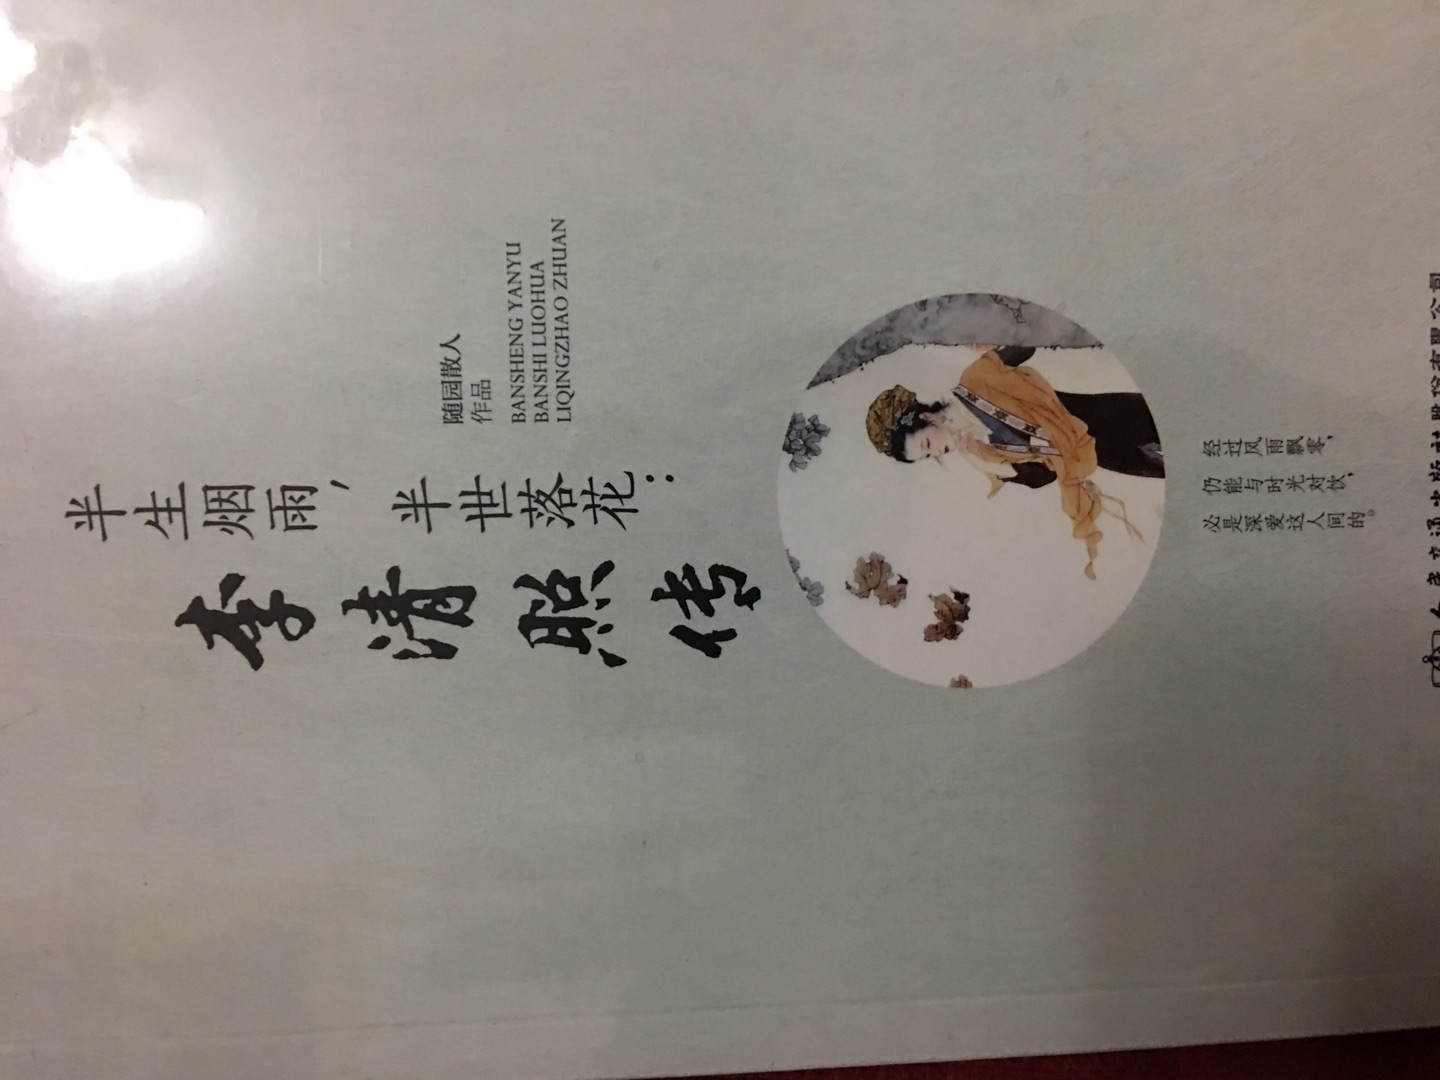 半生烟雨，
半世落花：
李清照传
随园散人
作品
BANSHENG YANYU
BANSHI LUOHUA
LIQINGZHAO ZHUAN
经过风雨飘零，
仍能与时光对饮，
必是深爱这人间的。